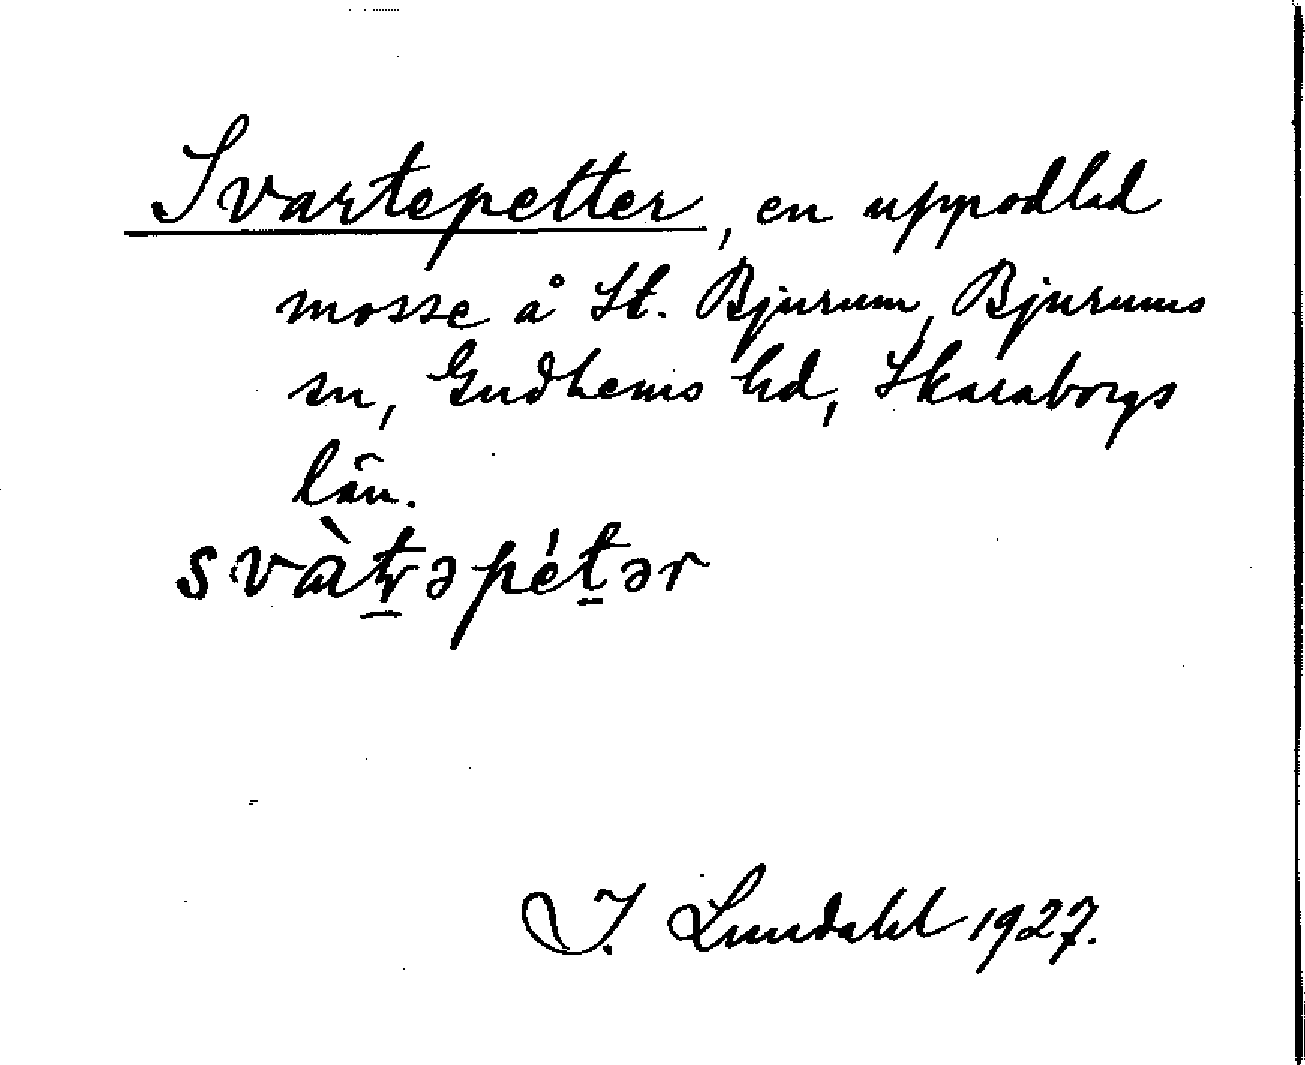 Svartepetter, en uppodlad
mosse å St. Bjurum, Bjurums
sn, Gudhems hd, Skaraborgs
län.
svàt̲rəpét̲ər
I. Lundahl 1927.